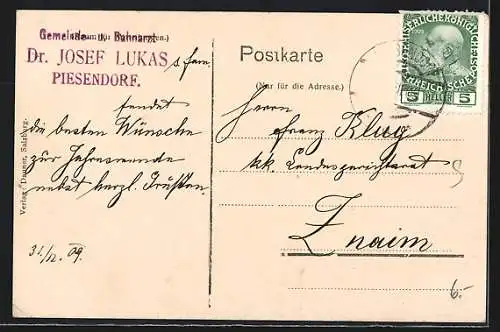 Gemeinde- u. Bahnarzt
Dr. JOSEF LUKAS
PIESENDORF.
s fam.
sendet
die besten Wünsche
zur Jahreswende
nebst herzl. Grüßen.
31/12. 09.
Verlag Dauner, Salzburg.
Postkarte
(Nur für die Adresse.)
5 HELLER 5
Herrn
Franz Klug
kk. Landesgerichtsrat
Znaim
6.-